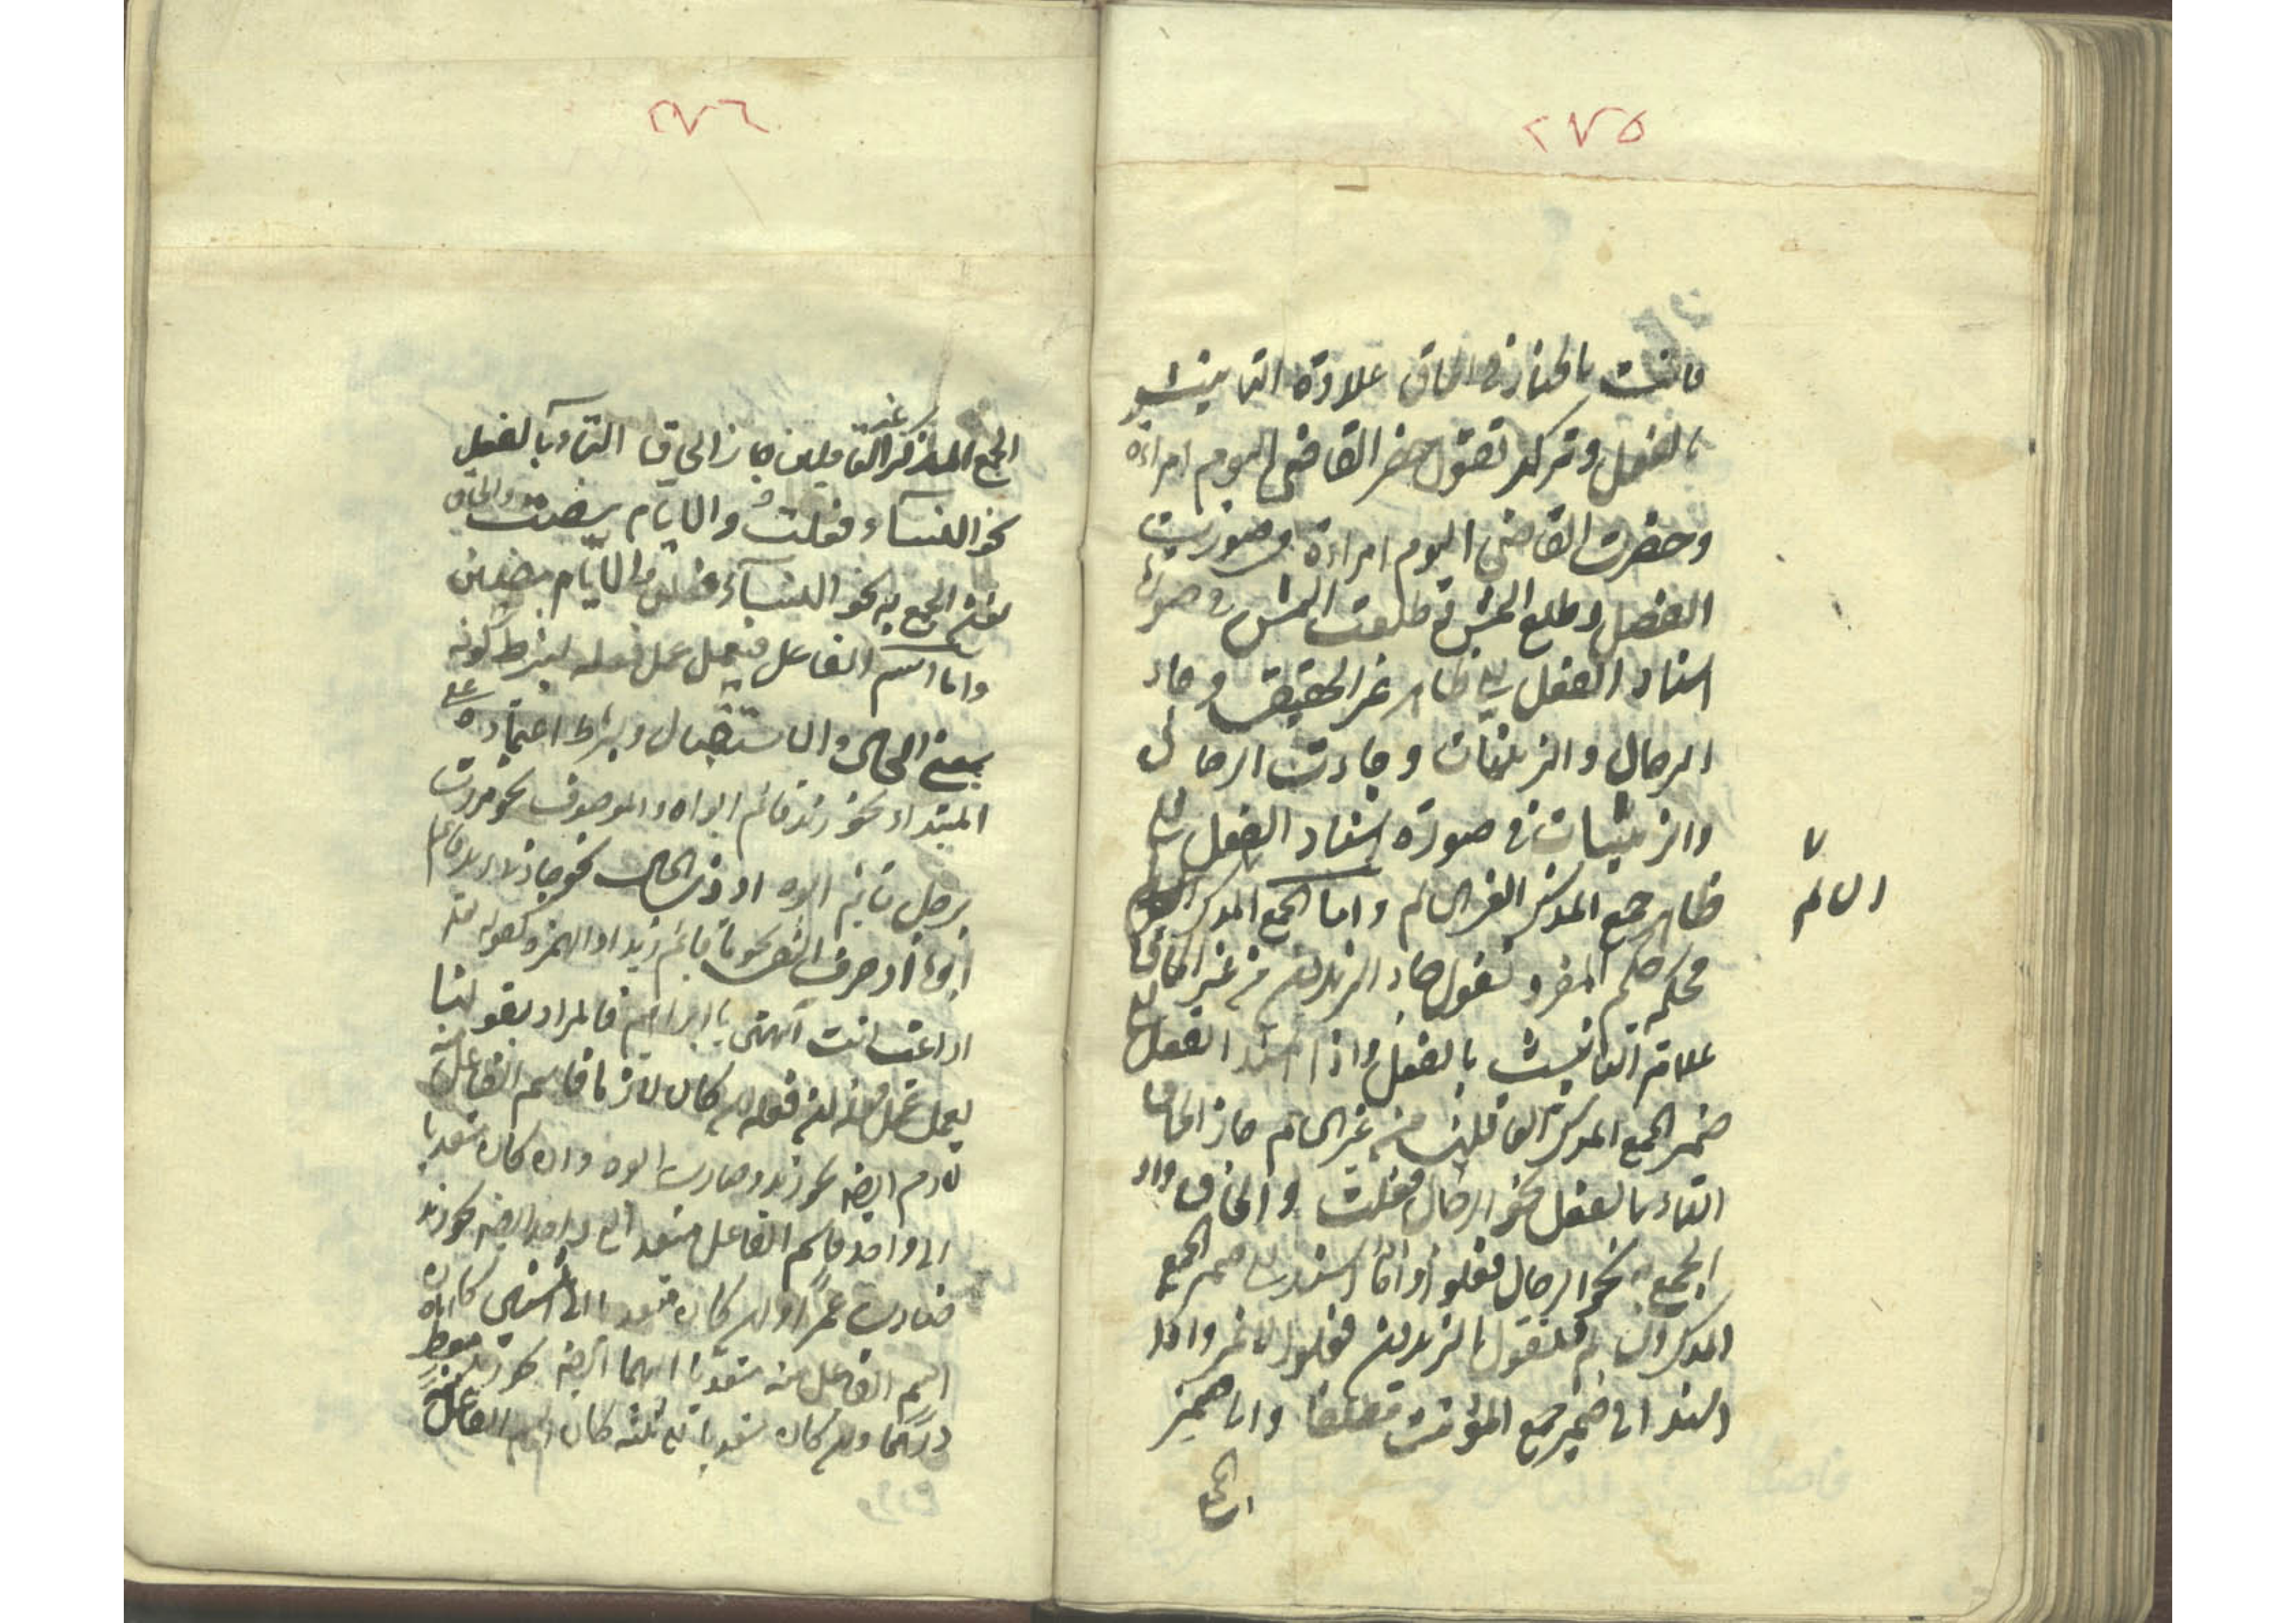 ٢٧٥
فانت بالخيار في الحاق علاوة التانيث
بالفعل وتركه تقول حضر القاضى اليوم امراءة
وحضرت القاضى اليوم امراءة في صورت
الفصل وطلع الشمس وطلعت الشمس في صورة
اسناد الفعل الى ظاهر غير الحقيقى وجاء
الرجال والزينبات وجاءت الرجال
والزينبات في صورة اسناد الفعل الى
ظاهر جمع المذكر الغير السالم واما الجمع المذكر
السالم
فحكمه حكم المفرد تقول جاء الزيدون من غير الحاق
علامة التانيث بالفعل واذا اسند الفعل الى
ضمير الجمع المذكر العاقلين من غير السالم جاز الحاق
التاء بالفعل نحو الرجال فعلت والحاق واو
الجمع به نحو الرجال فعلوا واذا اسند الى ضمير الجمع
المذكر السالم فتقول الزيدون فعلوا لا غير واذا
اسند الى ضمير جمع المؤنث مطلقا والى ضمير
الجمع
٢٧٦
الجمع المذكر غير العاقلين جاز الحاق التاء بالفعل
نحو النساء فعلت والايام مضت والحاق
نون الجمع به نحو النساء فعلن والايام مضين
واما اسم الفاعل فيعمل عمل فعله بشرط كونه
بمعنى الحال والاستقبال وبشرط اعتماده على
المبتداء نحو زيد قائم ابواه والموصوف نحو مررت
برجل قائم ابوه او ذى الحال نحو جاء زيد قائما
ابوه او حرف النفى نحو ما قائم زيد او الهمزة كقوله تعه
اراغب انت آلهتى يا ابراهيم فالمراد بقولنا
يعمل عمل فعله ان فعله ان كان لازما فاسم الفاعل منه
لازم ايضه نحو زيد ضارب ابوه وان كان متعديا
الى واحد فاسم الفاعل متعد الى واحد ايضه نحو زيد
ضارب عمرًا وان كان متعديا الى اثنين كان
اسم الفاعل منه متعديا اليهما ايضه نحو زيد معط اباه
درهمًا وان كان متعديا الى ثلثه كان اسم الفاعل